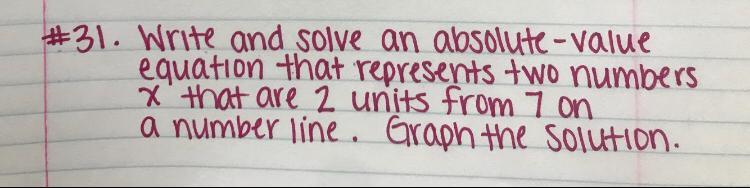 #31. Write and solve an absolute-value
equation that represents two numbers
x that are 2 units from 7 on
a number line. Graph the solution.